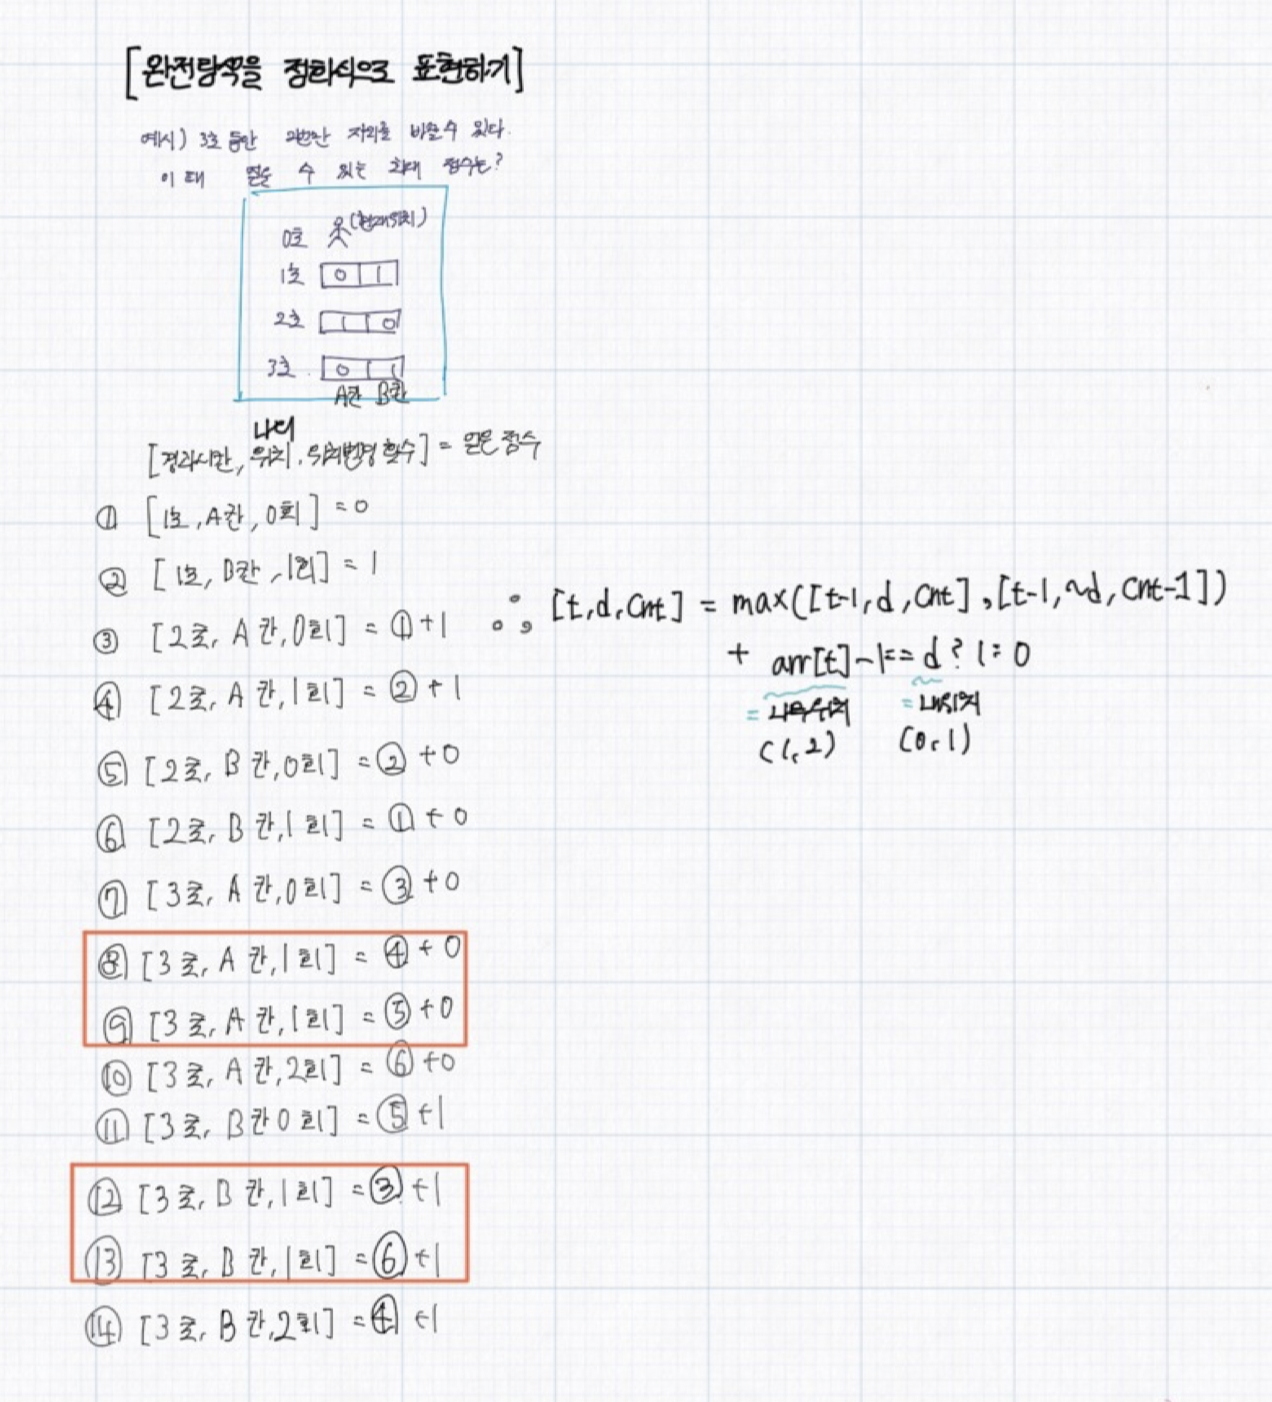 [완전탐색을 점화식으로 표현하기]
예시) 3초 동안 2번만 자리를 바꿀 수 있다.
이 때 얻을 수 있는 최대 점수는?
0초 (현재위치)
1초 0 1
2초 1 0
3초 0 1
A칸 B칸
나의
[경과시간, 위치, 위치변경 횟수] = 얻은 점수
① [1초, A칸, 0회] = 0
② [1초, B칸, 1회] = 1
③ [2초, A칸, 0회] = ①+1
④ [2초, A칸, 1회] = ②+1
⑤ [2초, B칸, 0회] = ②+0
⑥ [2초, B칸, 1회] = ①+0
⑦ [3초, A칸, 0회] = ③+0
⑧ [3초, A칸, 1회] = ④+0
⑨ [3초, A칸, 1회] = ⑤+0
⑩ [3초, A칸, 2회] = ⑥+0
⑪ [3초, B칸 0회] = ⑤+1
⑫ [3초, B칸, 1회] = ③+1
⑬ [3초, B칸, 1회] = ⑥+1
⑭ [3초, B칸, 2회] = ④+1
∴ [t, d, Cnt] = max([t-1, d, Cnt], [t-1, ~d, Cnt-1])
+ arr[t]-1 == d ? 1 : 0
= = 내위치
(1, 2) (0, 1)